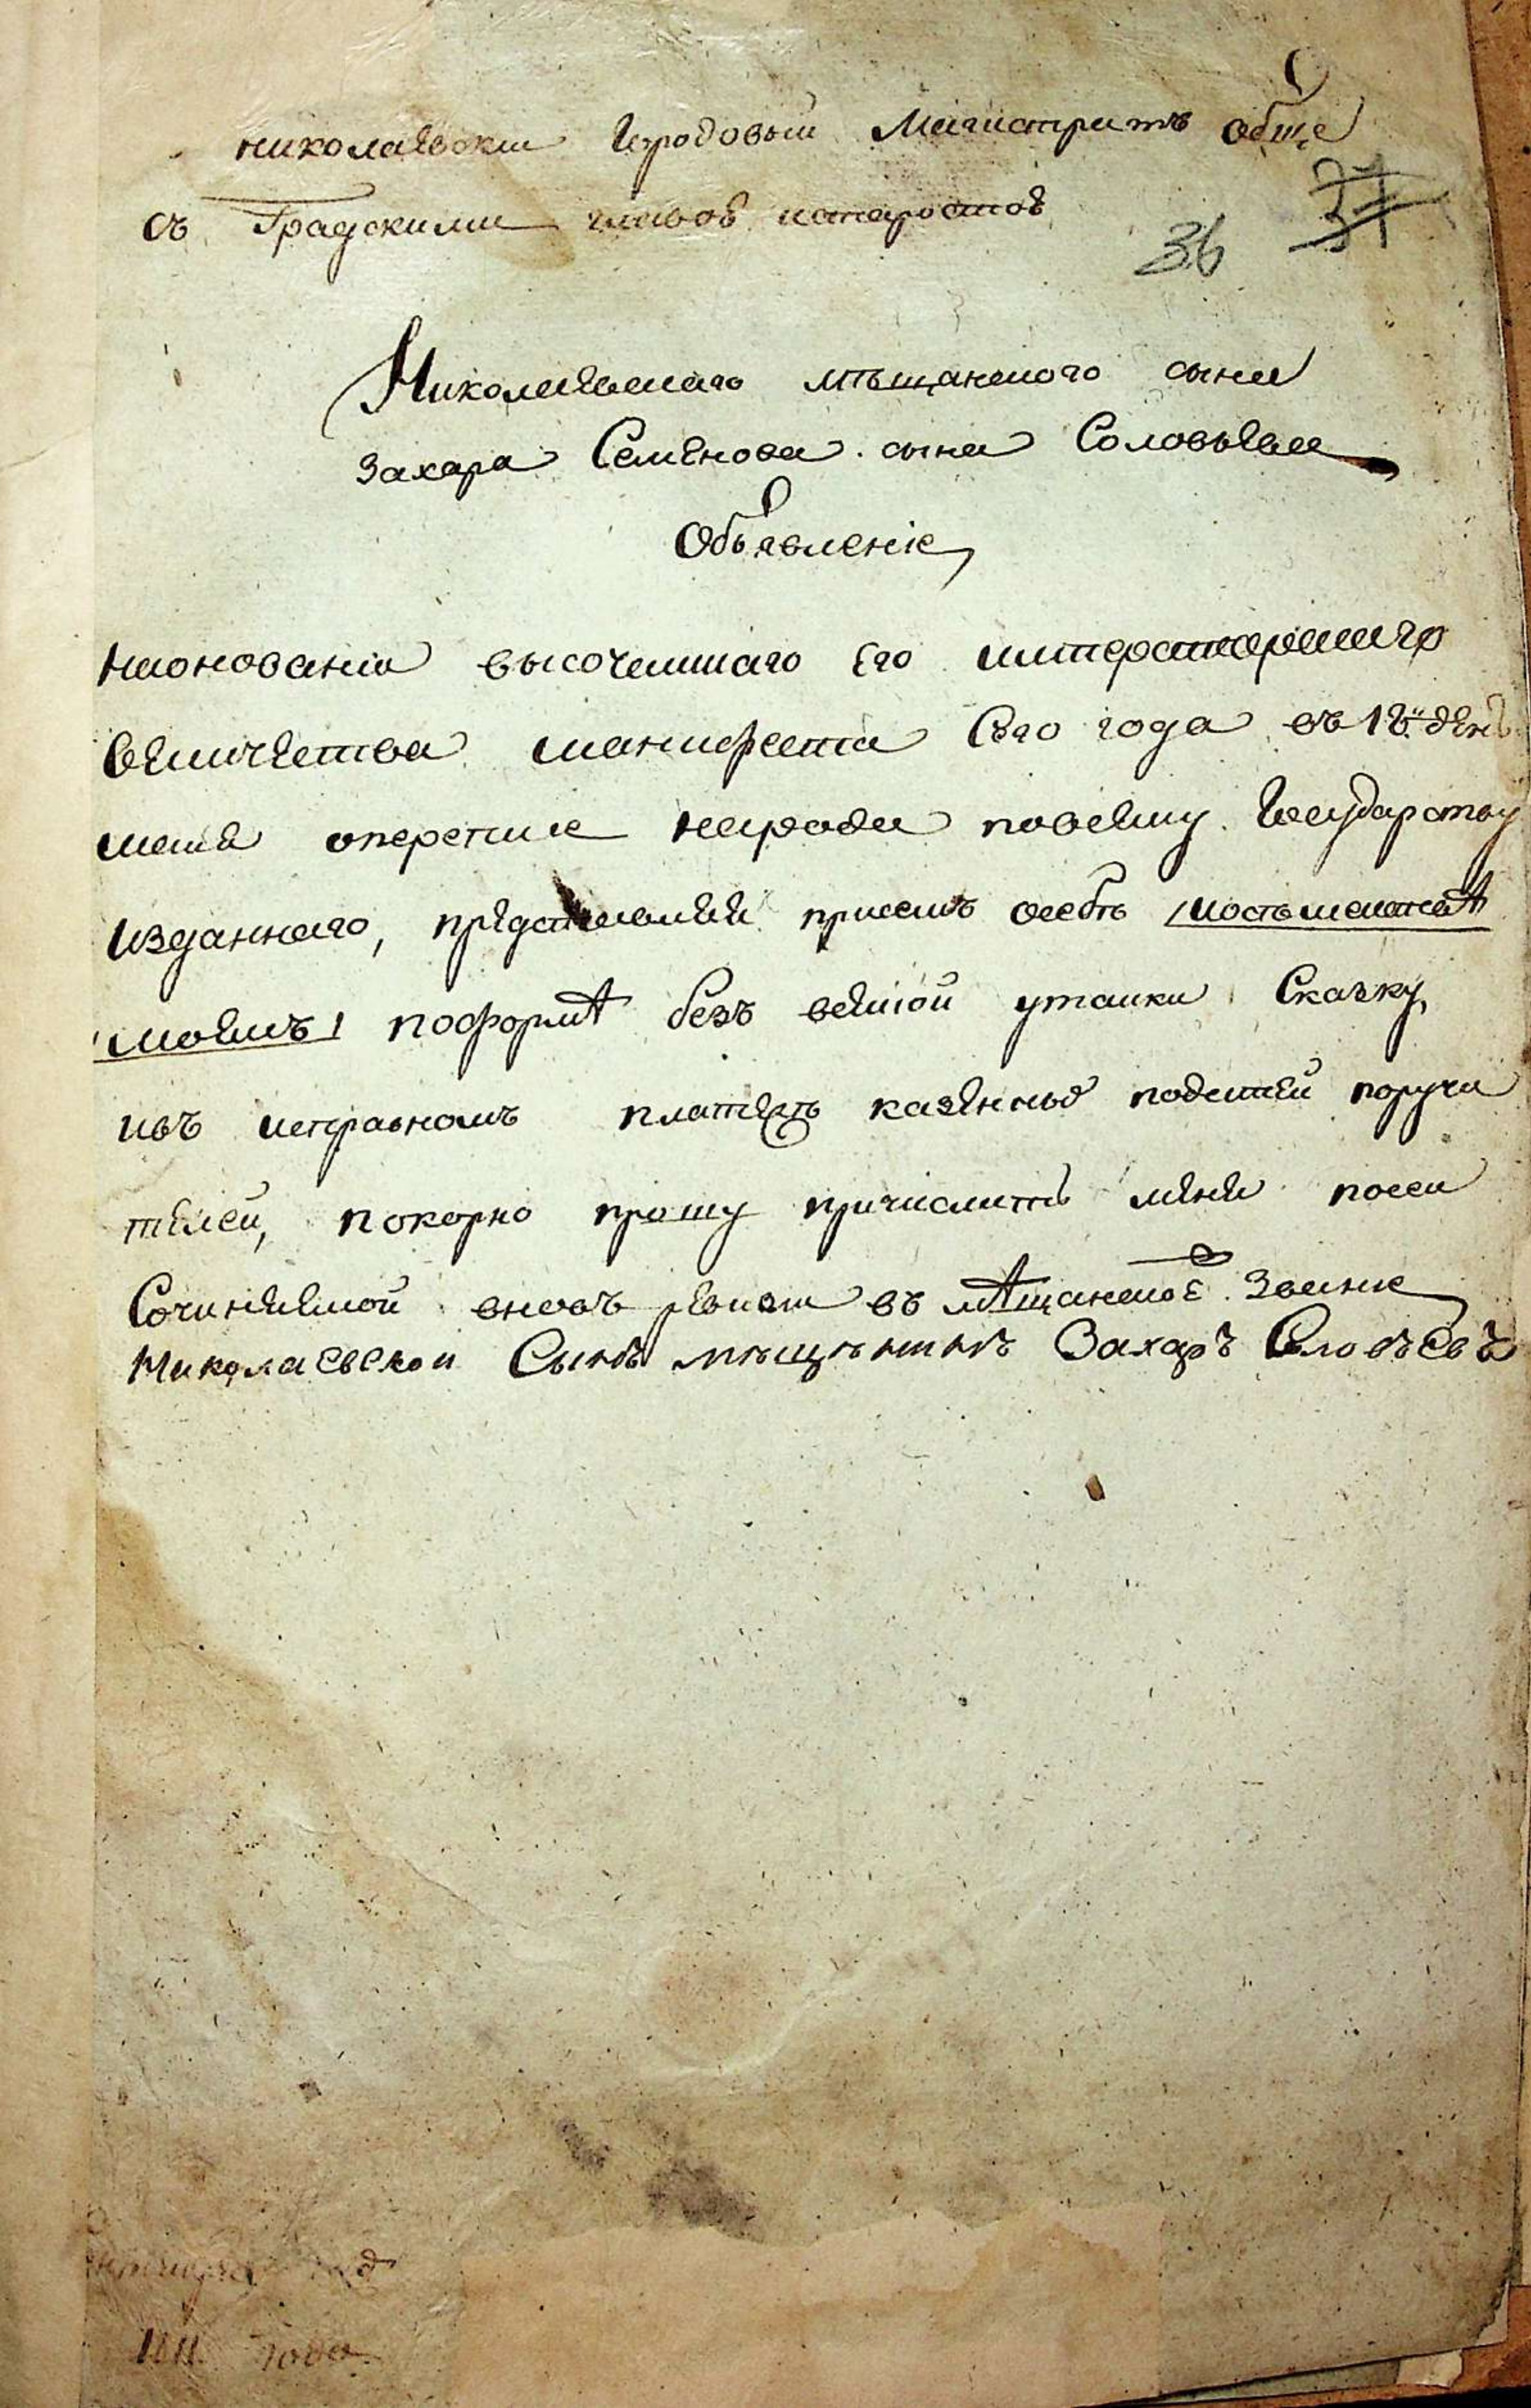 николаевски Городовыи Магистратъ обще
съ Градскими главою истаростою
36 37
Николаевскаго мѣщанского сына
Захара Семенова сына Соловьева
Объявление
Наоснованiи высочаишаго Его императорскаго
Величества манифеста Сего года въ 18 день
маiя опереписи народа повсему Государству
изданнаго, представляя присемъ осебѣ
моемъ поформѣ безъ всякой утаики Сказку,
ивъ исправномъ платежѣ казенныхъ податей поручи
телей, покорно прошу причислить меня посеи
Сочиняемой вновь ревизiи въ мѣщанское Звание
Николаевской Сынъ мѣщанинъ Захаръ Соловьевъ
года